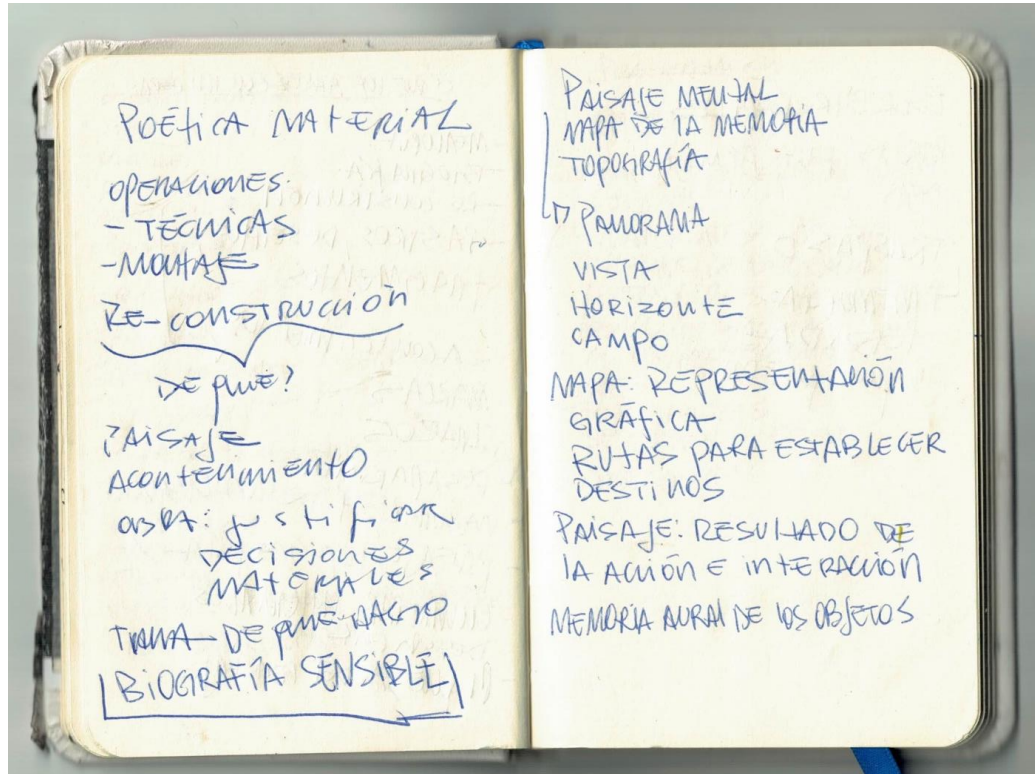 POÉTICA MATERIAL
OPERACIONES:
- TÉCNICAS
- MONTAJE
RE-CONSTRUCCIÓN
DE QUÉ?
PAISAJE
ACONTECIMIENTO
OBRA: justificar
DECISIONES
MATERIALES
DE QUÉ
BIOGRAFÍA SENSIBLE
PAISAJE MENTAL
MAPA DE LA MEMORIA
TOPOGRAFÍA
PANORAMA
VISTA
HORIZONTE
CAMPO
MAPA: REPRESENTACIÓN
GRÁFICA
RUTAS PARA ESTABLECER
DESTINOS
PAISAJE: RESULTADO DE
LA ACCIÓN E INTERACCIÓN
MEMORIA AURAL DE LOS OBJETOS